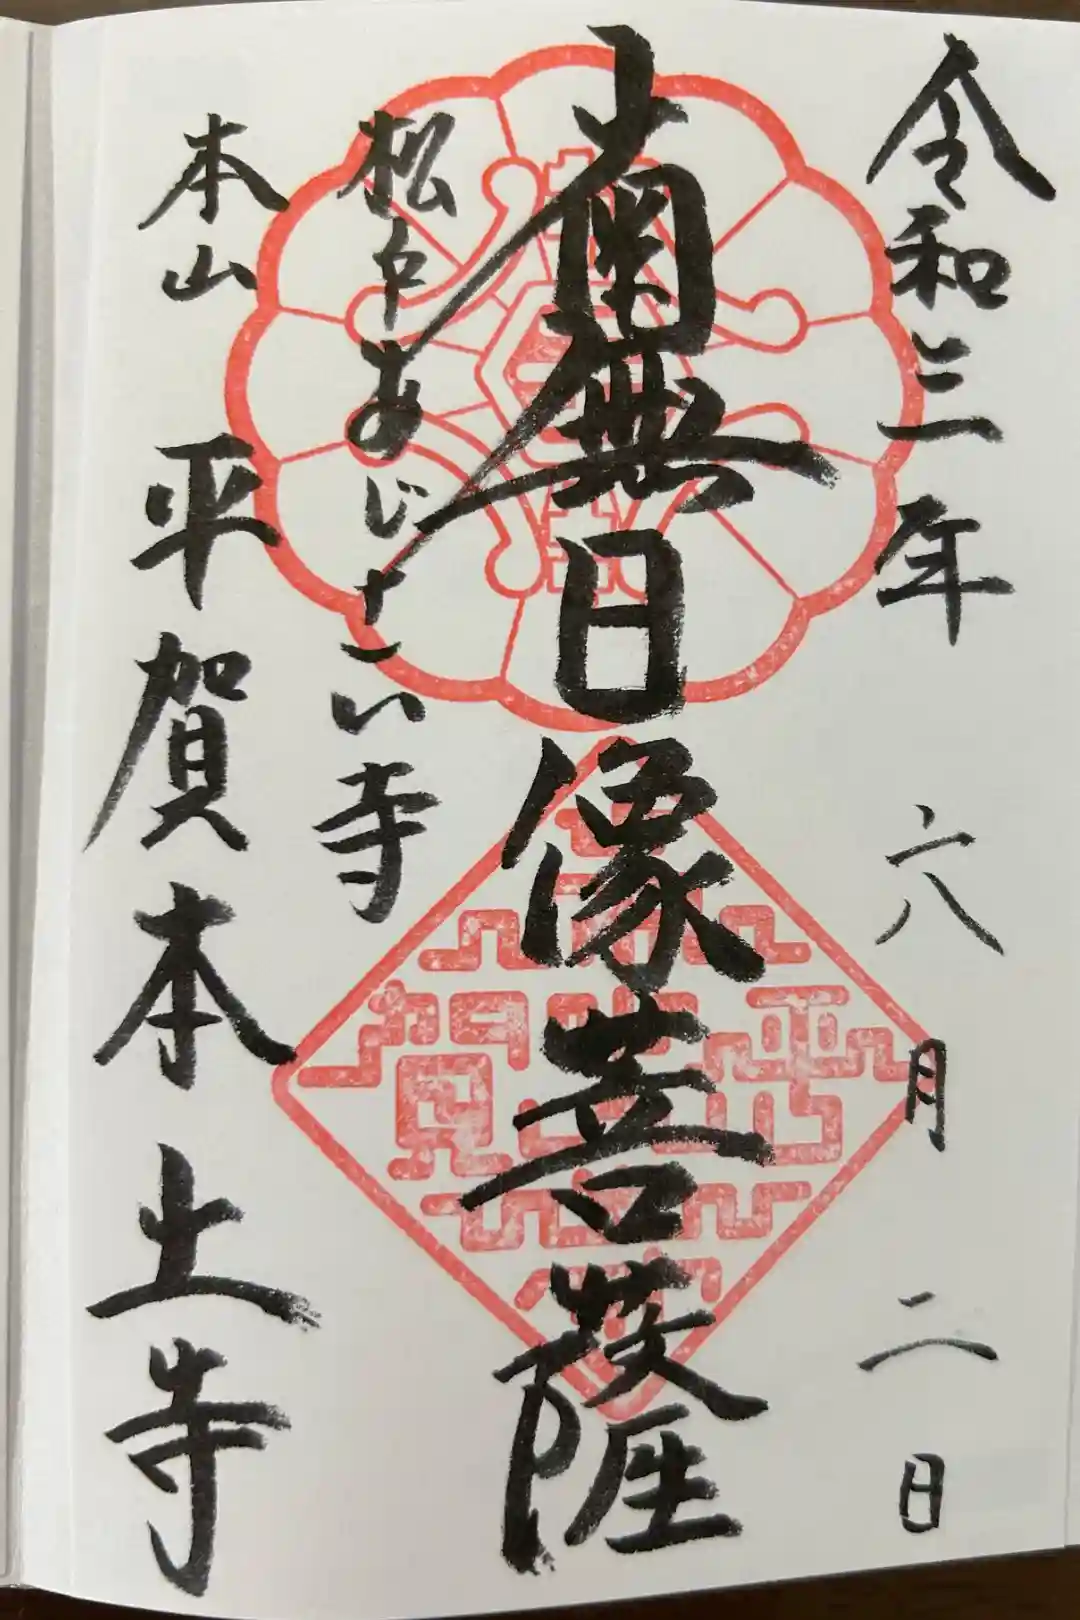 令和三年 六月二日
南無日像菩薩
松戸あじさい寺
本山 平賀本土寺